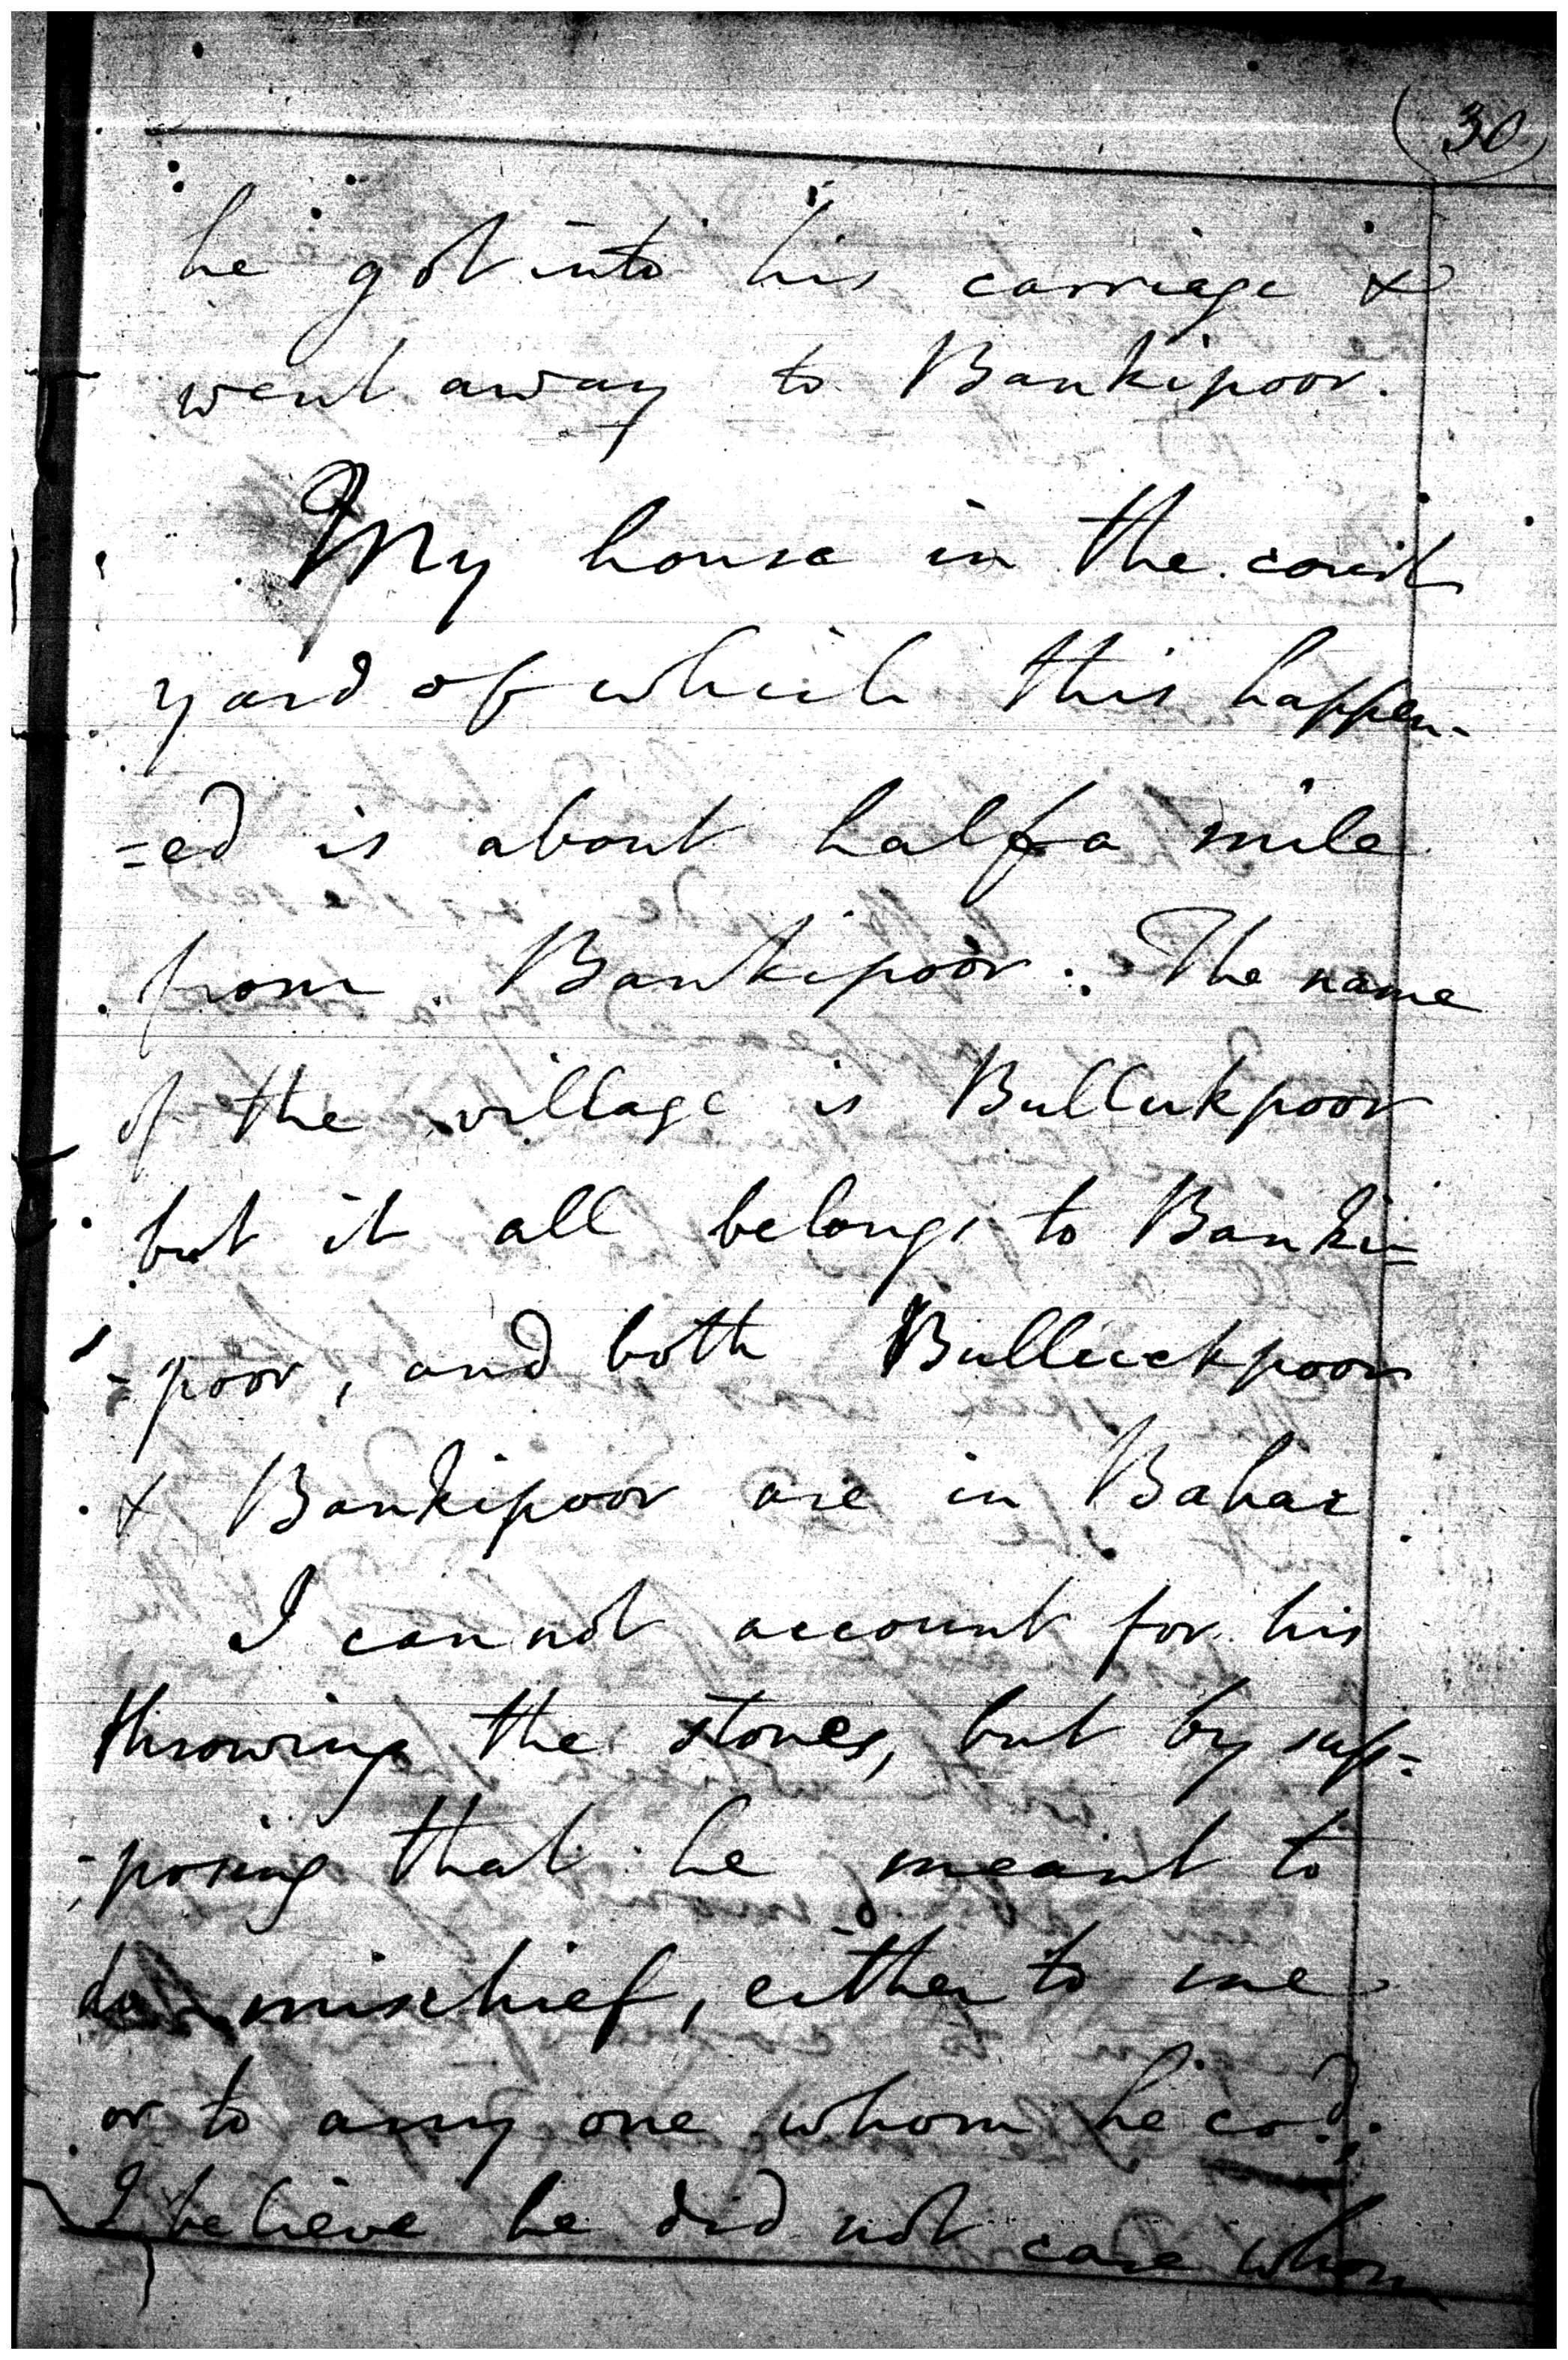 (30)
he got into his carriage &
went away to Bankipoor.
My house in the court
yard of which this happen-
=ed is about half a mile
from Bankipoor. The name
of the village is Bullukpoor
but it all belongs to Banki=
=poor, and both Bulluckpoor
& Bankipoor are in Bahar
I cannot account for his
throwing the stones, but by sup=
-posing that he meant to
do mischief, either to me
or to any one whom he cod.
I believe he did not care whom